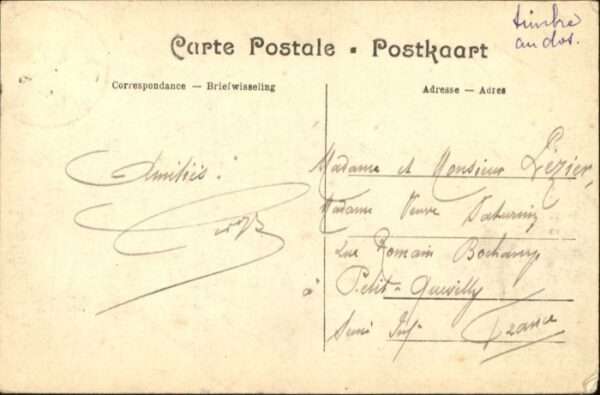 timbre
au dos.
Carte Postale • Postkaart
Correspondance — Briefwisseling
Adresse — Adres
Amitiés.
Madame et Monsieur Lézier,
Madame Veuve Saturnin
Rue Romain Bochamp
à Petit-Quevilly
Seine Inf. France